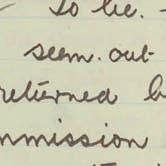 to be.
seem. out
returned b
mmission